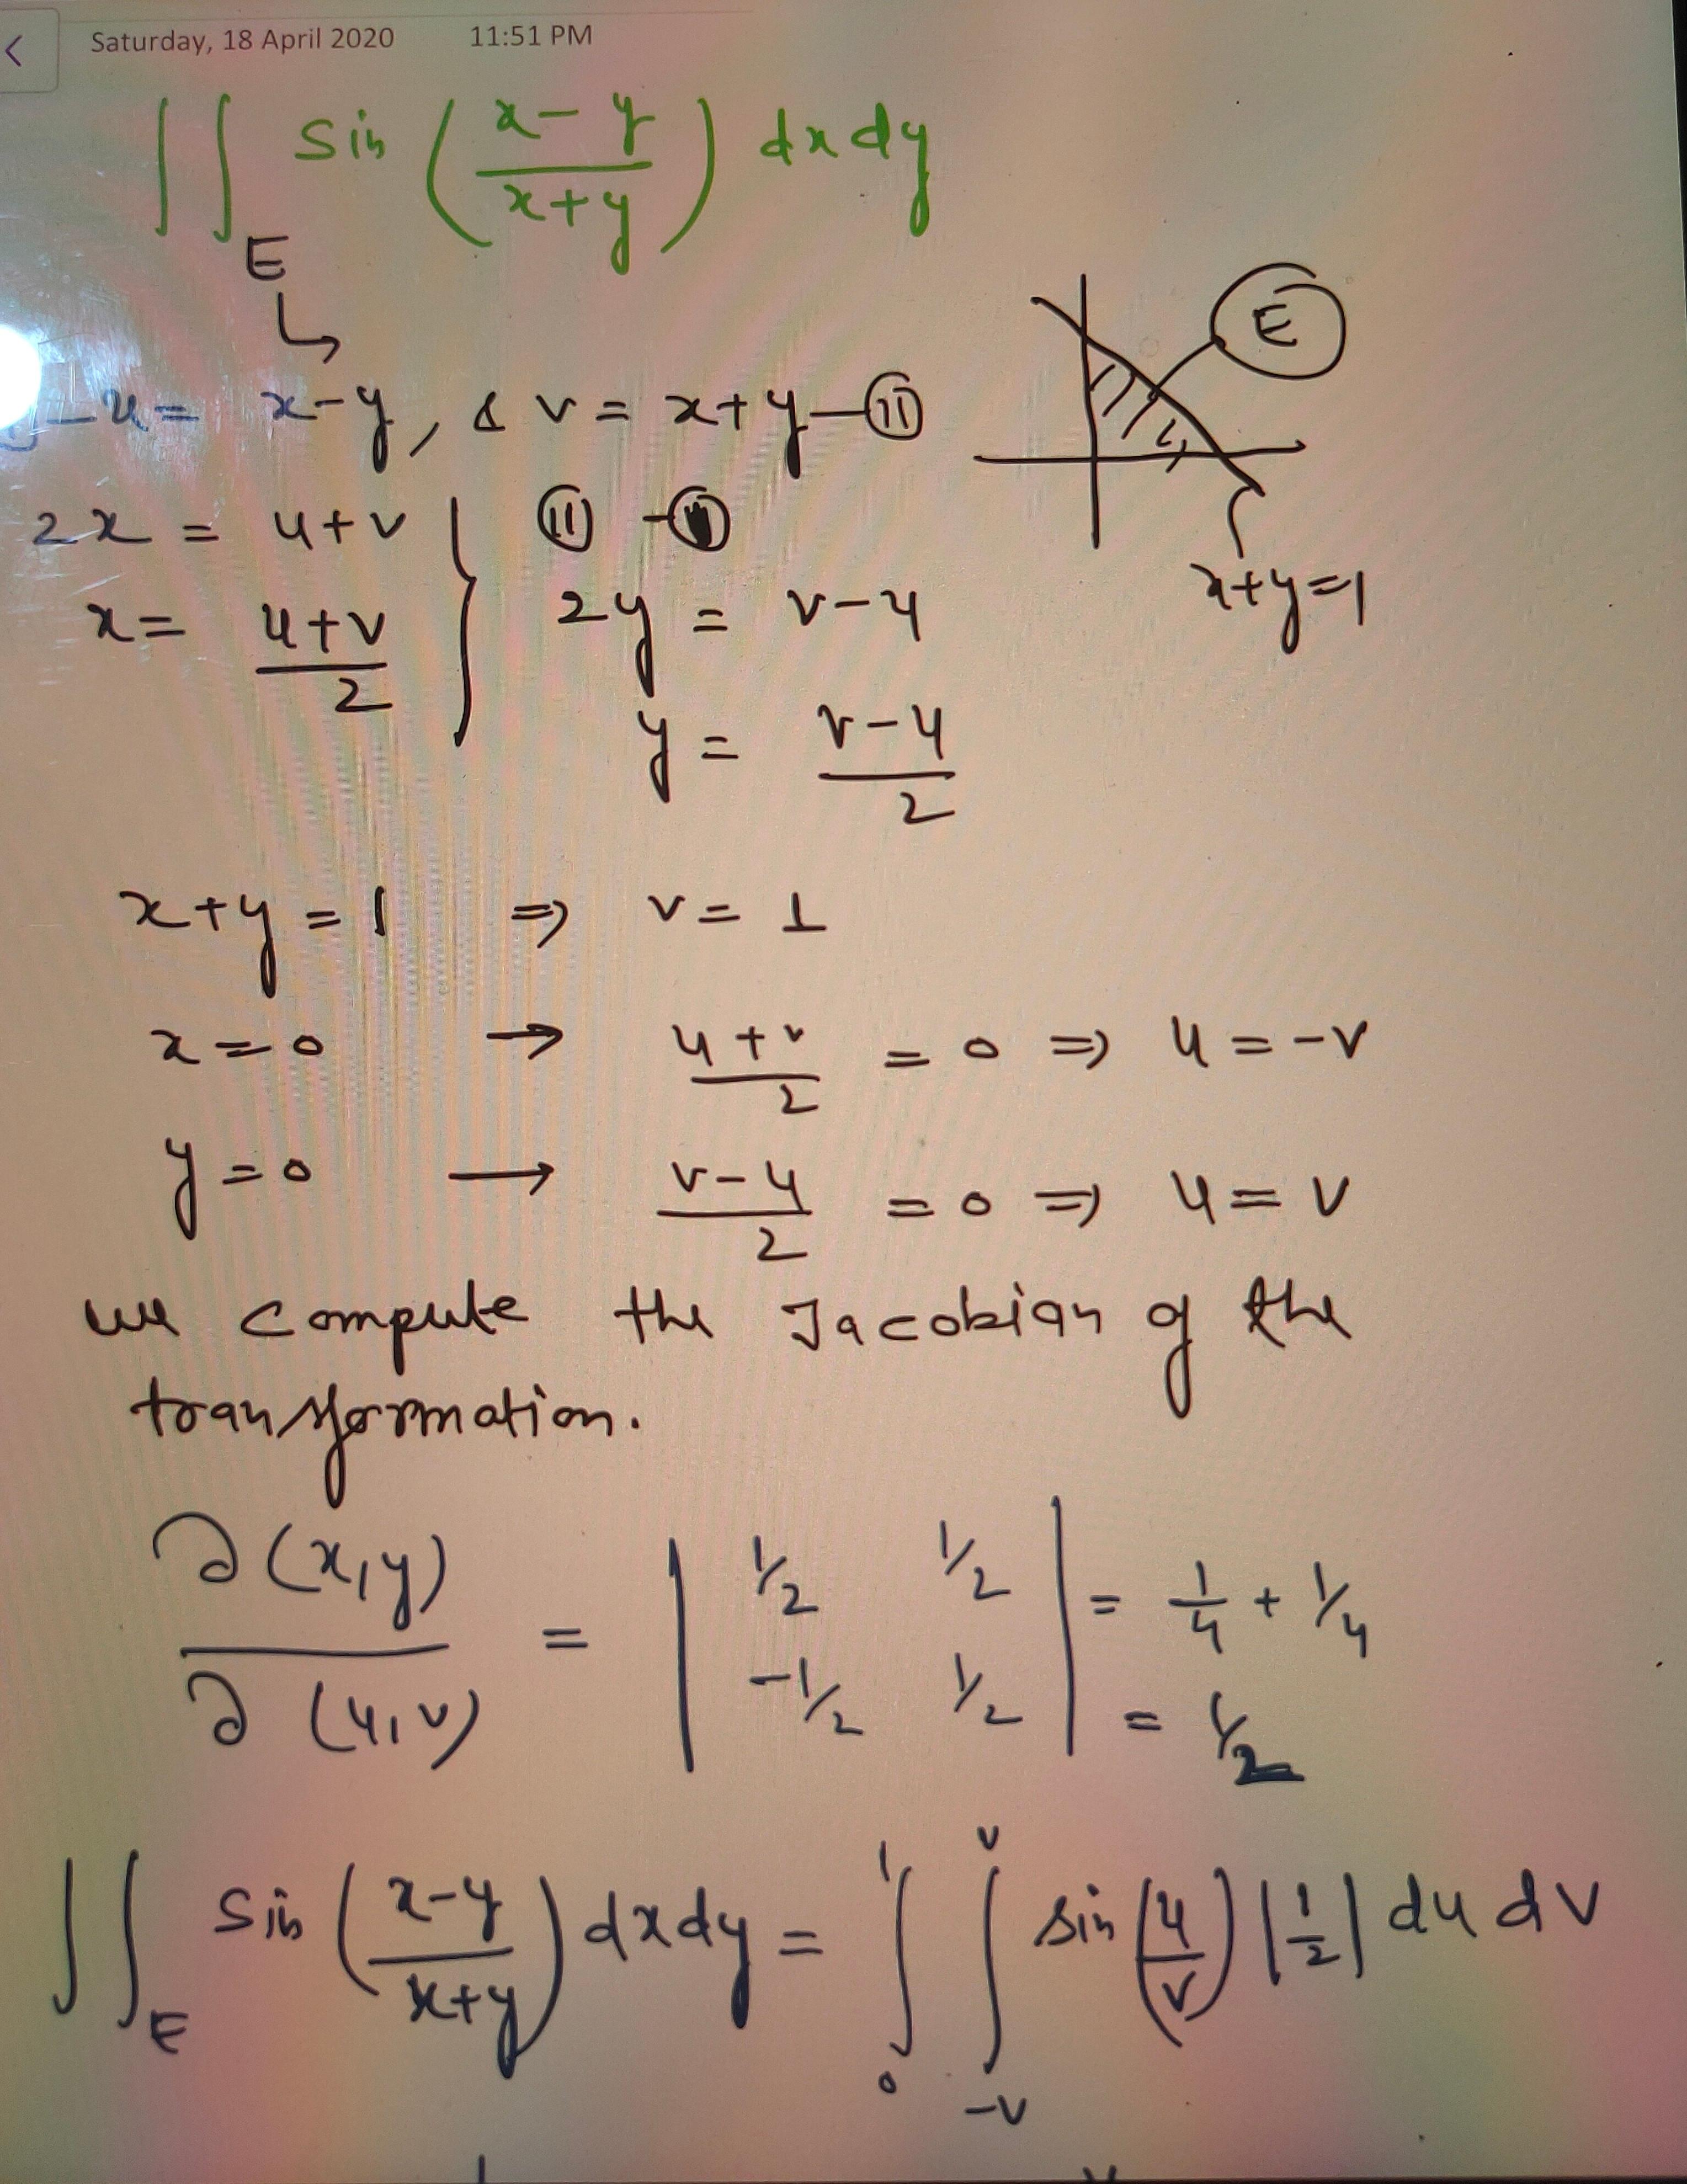 Saturday, 18 April 2020 11:51 PM
∫∫_E sin((x-y)/(x+y)) dx dy
E
— u = x-y, & v = x+y — (II)
2x = u+v
(II) -
x = (u+v)/2
2y = v-u
x+y=1
y = (v-u)/2
x+y = 1 ⇒ v = 1
x = 0 → (u+v)/2 = 0 ⇒ u = -v
y = 0 → (v-u)/2 = 0 ⇒ u = v
we compute the Jacobian of the
transformation.
∂(x,y)/∂(u,v) = | 1/2 1/2 | = 1/4 + 1/4
| -1/2 1/2 | = 1/2
∫∫_E sin((x-y)/(x+y)) dx dy = ∫_0^1 ∫_{-v}^{v} sin(u/v) |1/2| du dv